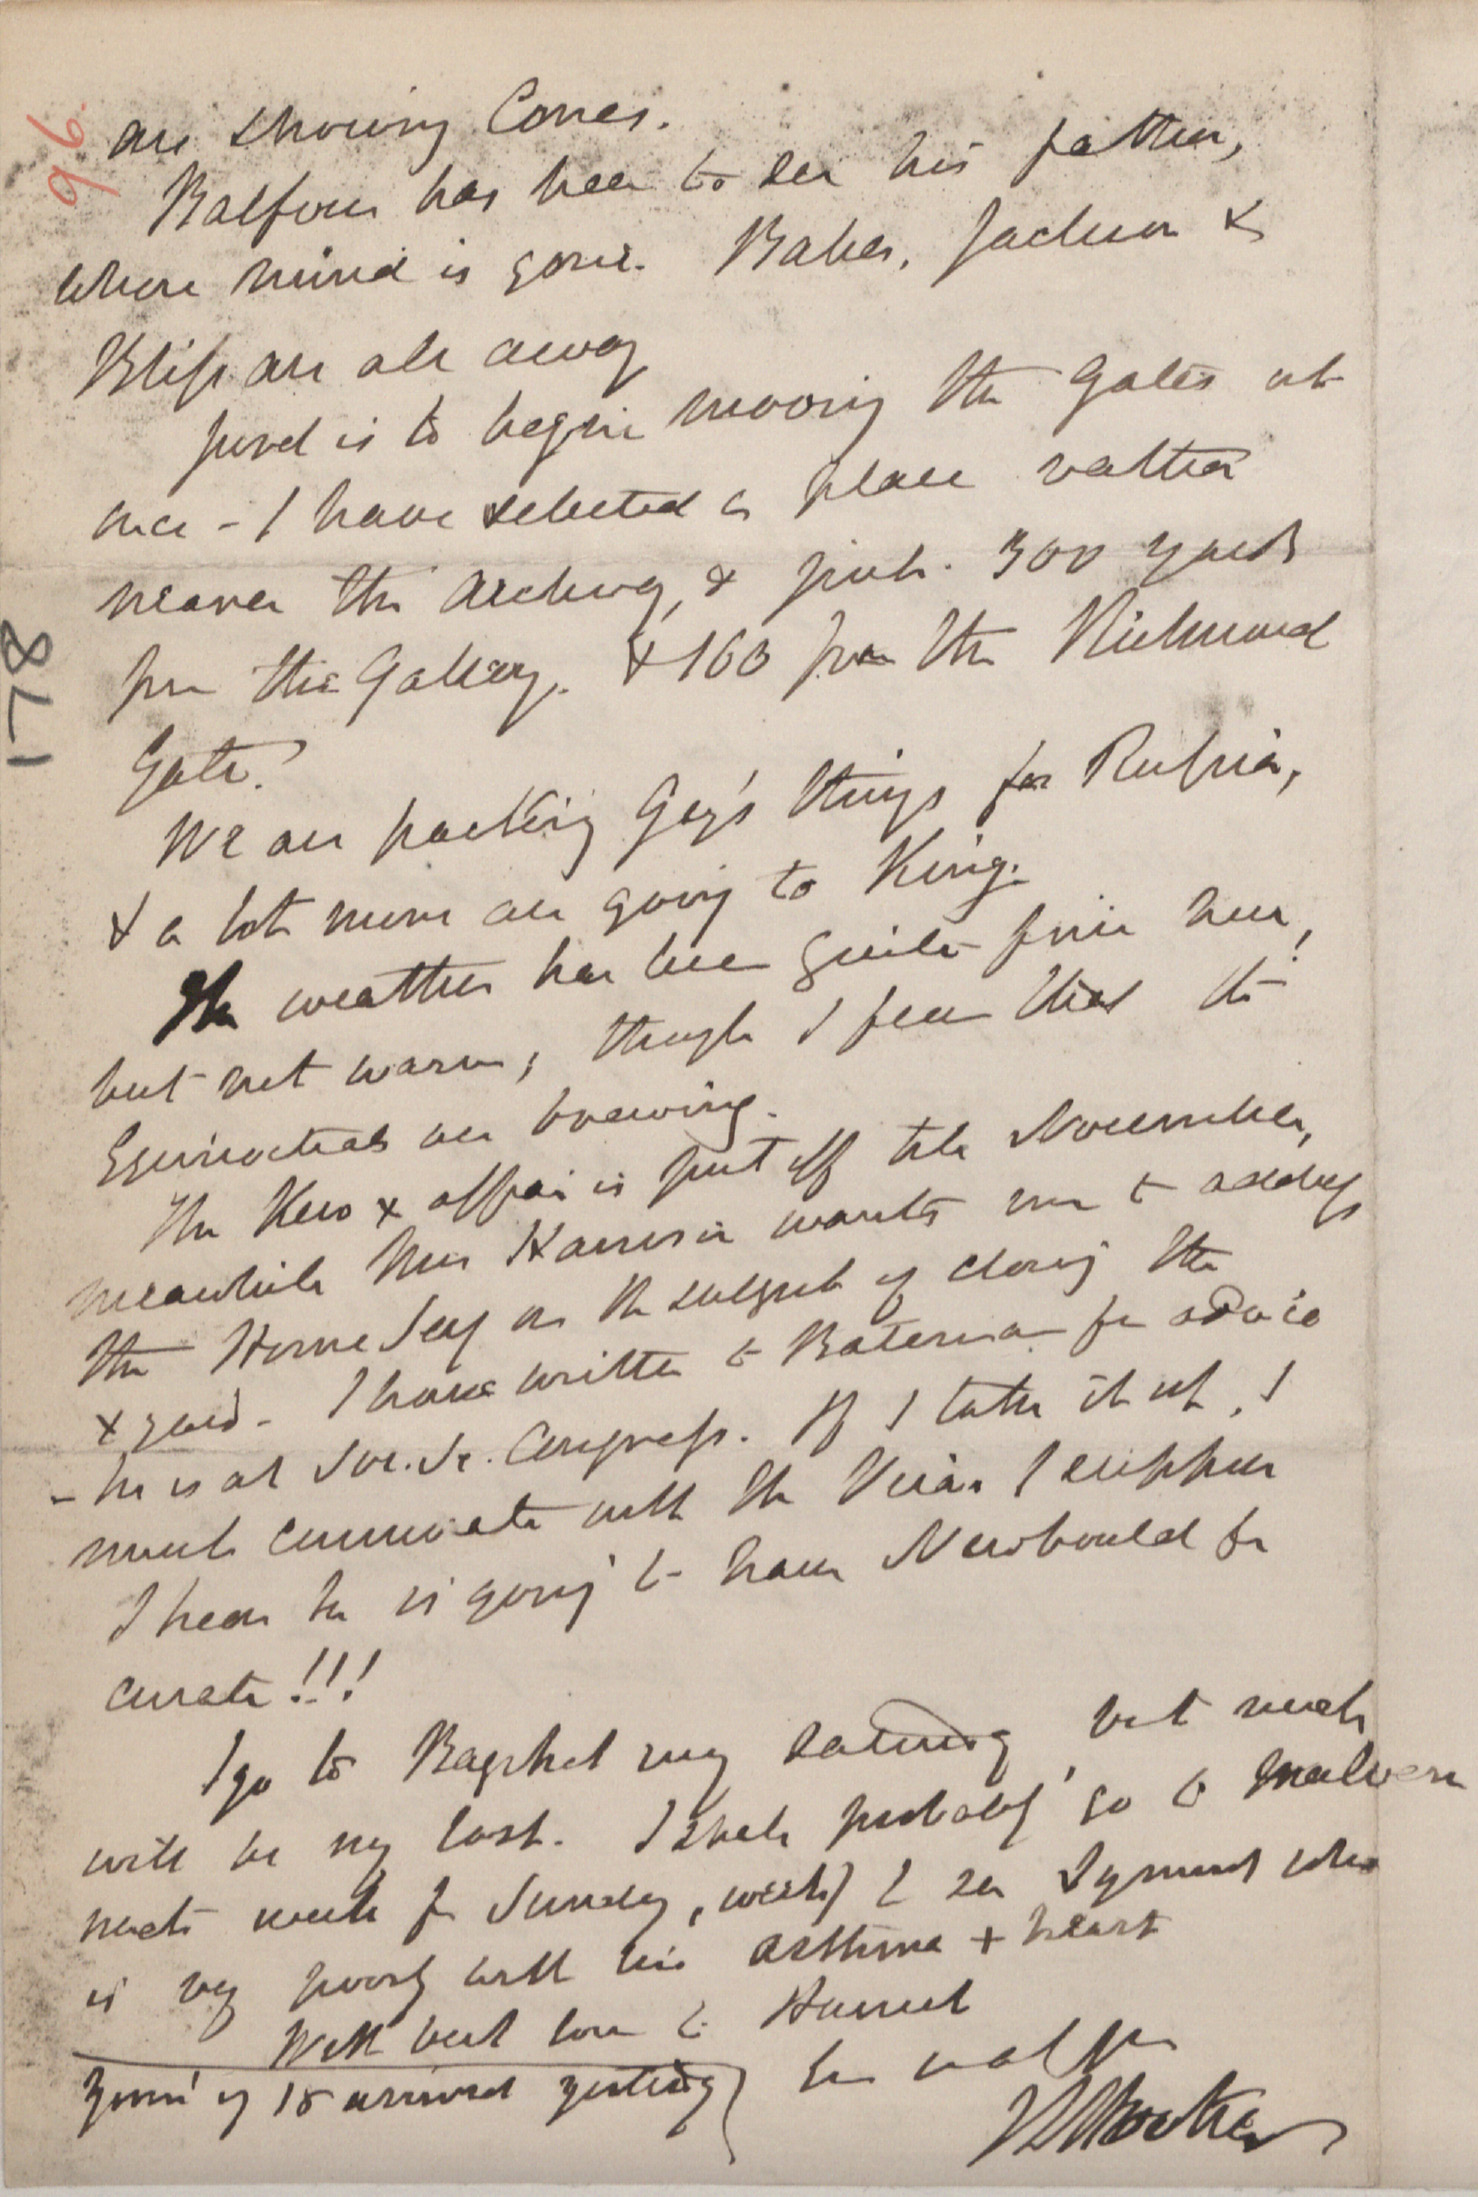 96
178
are showing Cones.
Balfour has been to see his father,
whose mind is gone. Baker, Jackson &
Bliss are all away
is to begin moving the Gates at
once - I have selected a place rather
nearer the Archway, & just. 300 yards
from the Gallery. & 160 from the Richmond
Gate.
We are packing Gay's things for Russia,
& a lot more are going to King.
The weather has been quite fine here,
but not warm, though I fear that the
Equinoctials are brewing.
The Kew x affair is put off till November,
meanwhile Mrs Harrison wants me to address
the Home Secy on the subject of closing the
x yard. I have written to Bateman for advice
- he is at Soc. Sc. Congress. If I take it up, I
must communicate with the Vicar I suppose
I hear he is going to have Newbould for
curate!!!
I go to Bagshot every Saturday, but next
will be my last. I shall probably go to Malvern
next week for Sunday, to see Symonds who
is very poorly with his asthma + heart
With best love to Harriet
Yours of 18 arrived yesterday
Ever yrs aff
J D Hooker